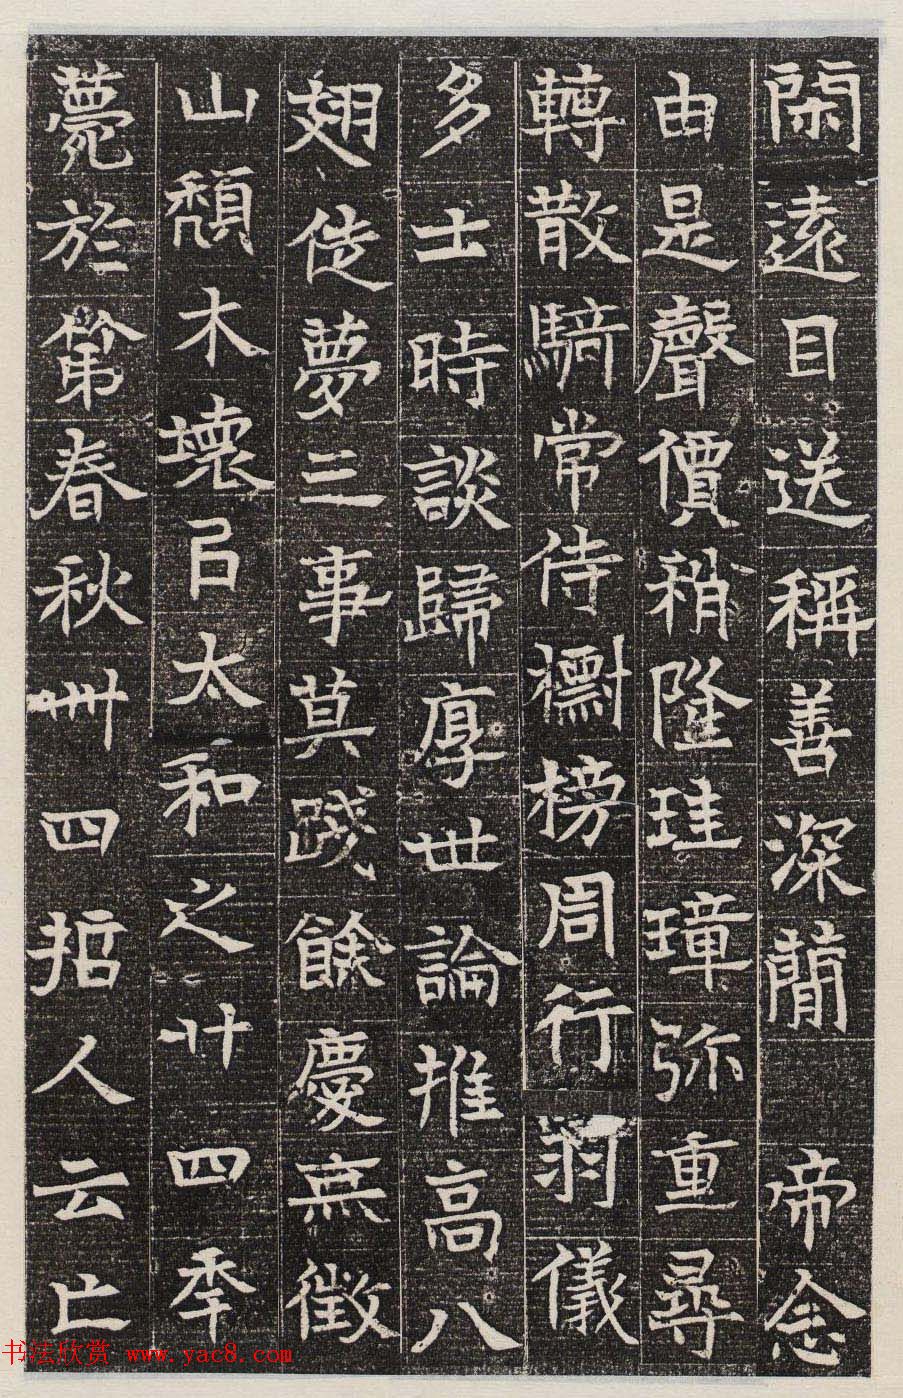 閑遠目送稱善深簡帝念
由是聲價稍隆珪璋弥重尋
轉散騎常侍襽榜周行羽儀
多士時談歸厚世論推高八
翅徙夢三事莫踐餘慶無徵
山頹木壞以太和之廿四季
薨於第春秋卌四哲人云亡
书法欣赏 www.yac8.com